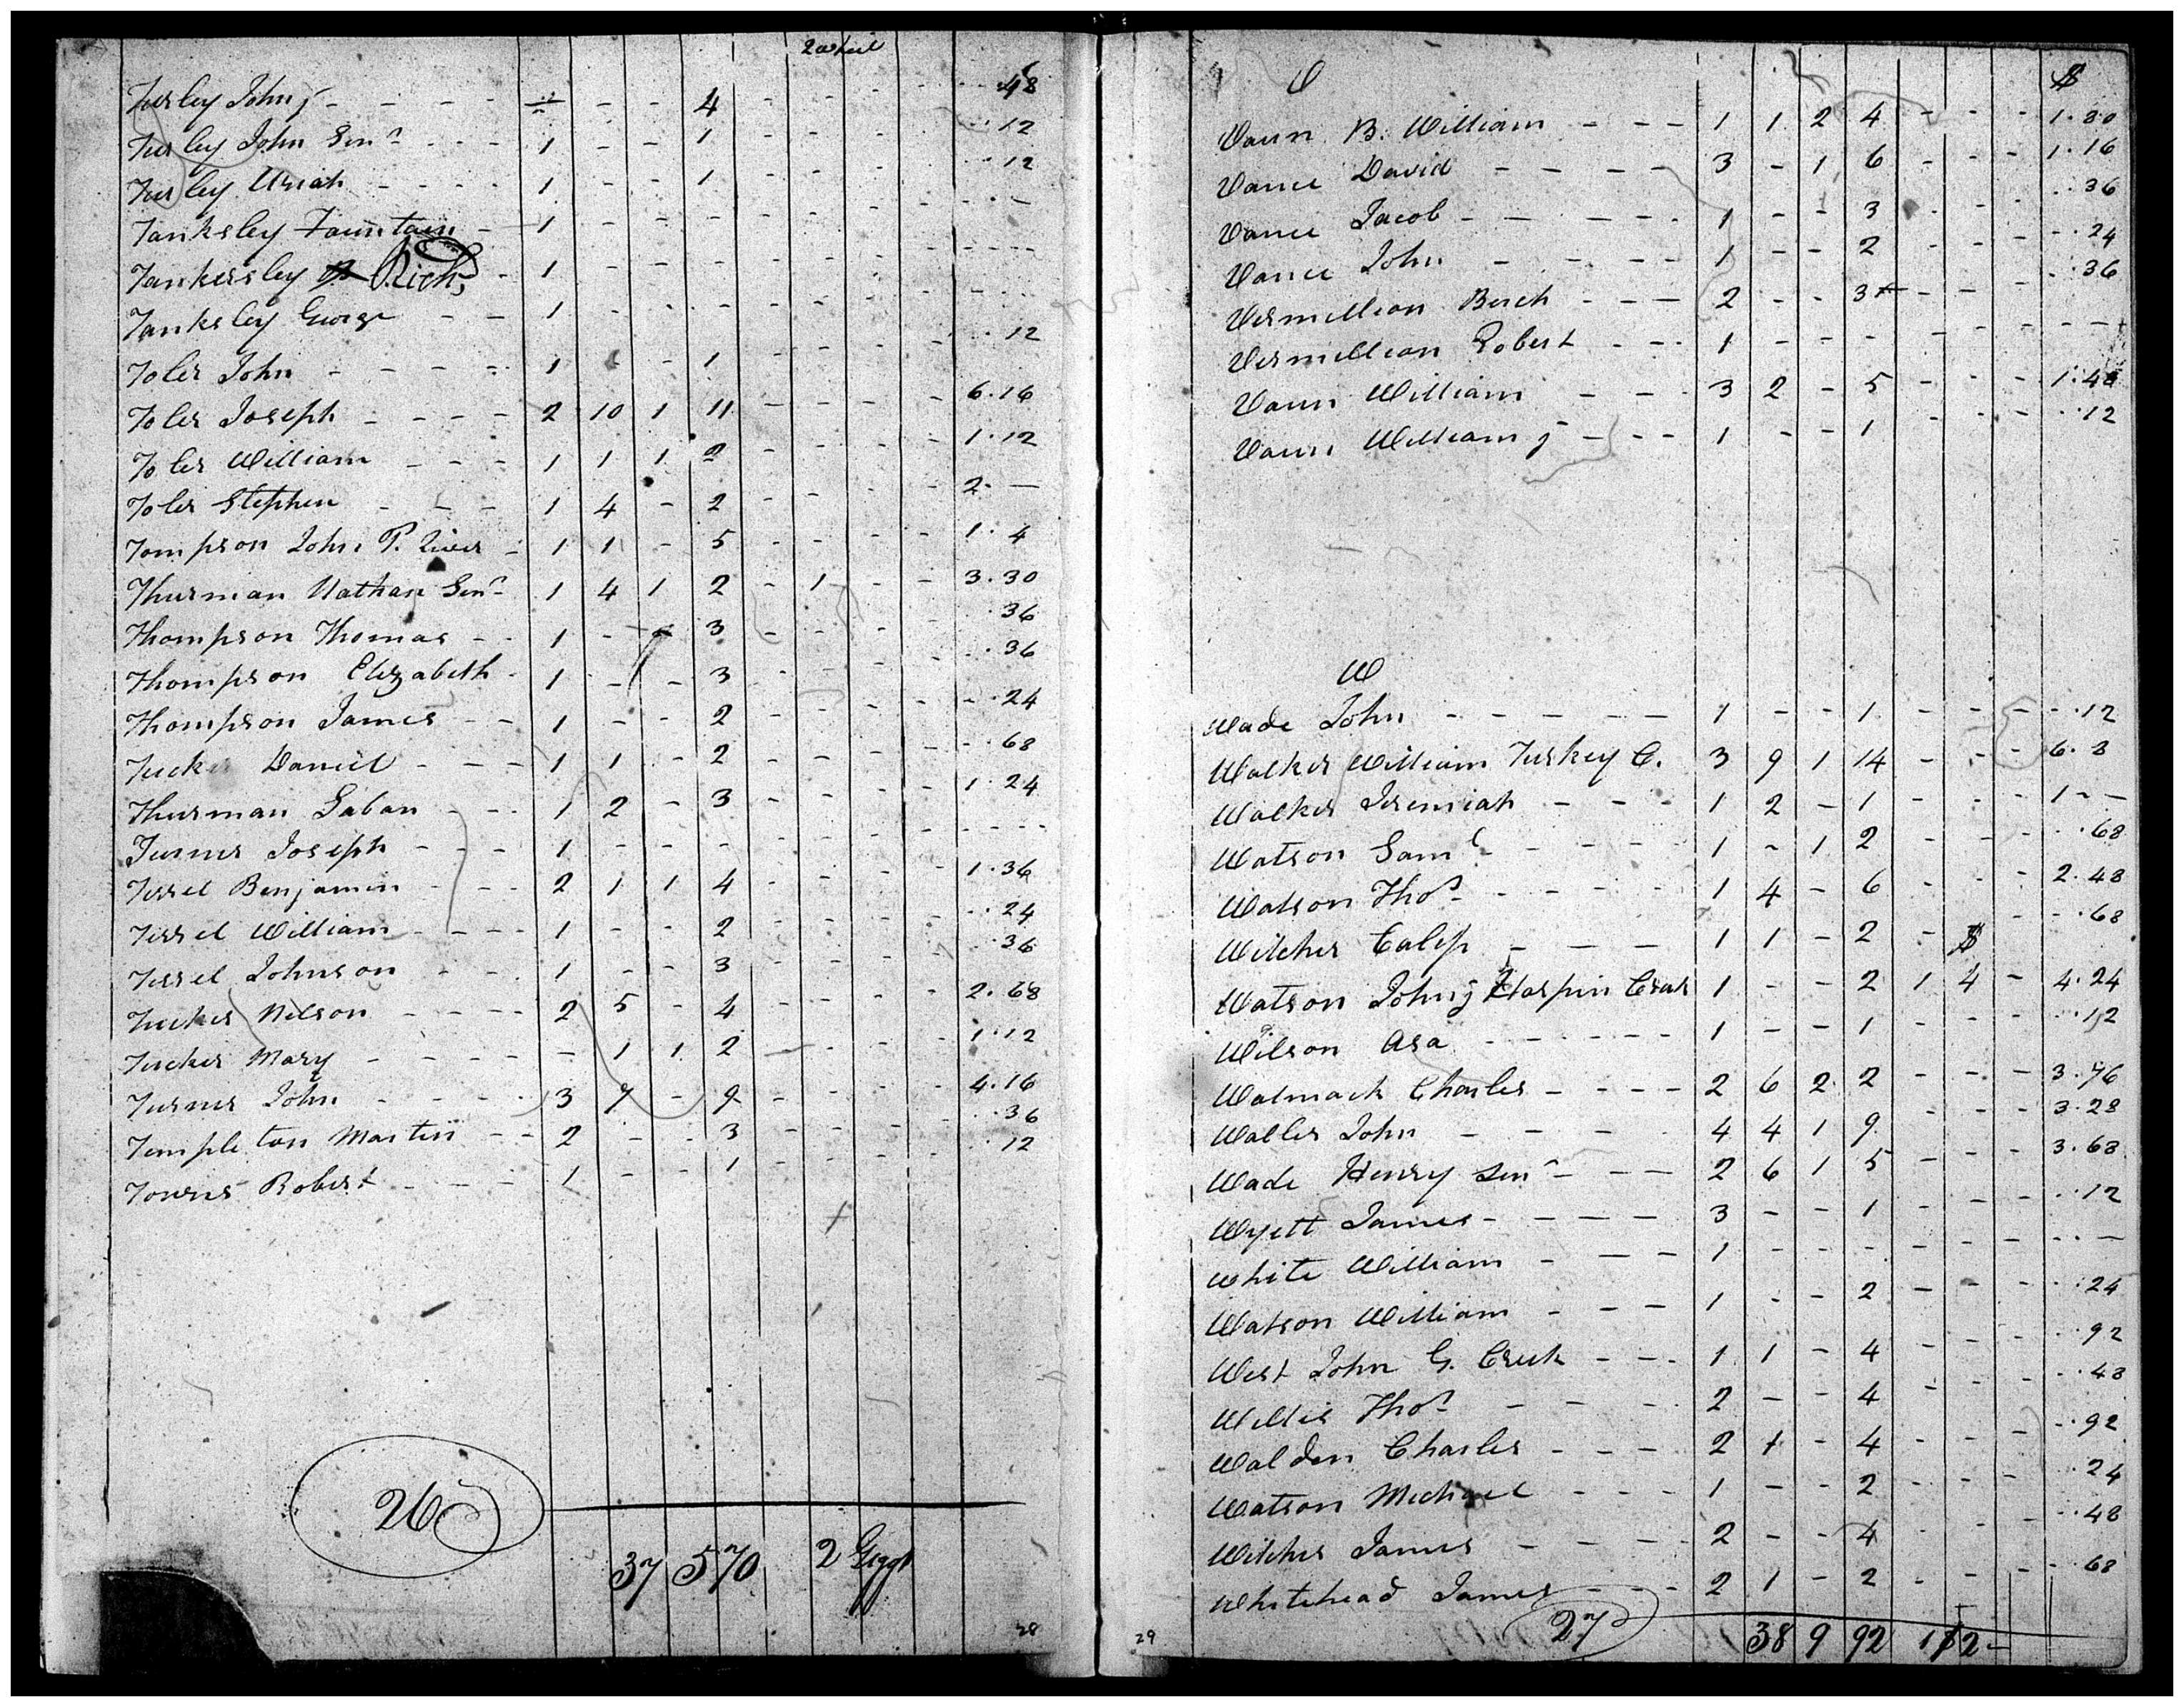 2 wheel
Tursley John j - - - - ÷ - - 4 - - - - 48
Tursley John Senr - - - 1 - - 1 - - - - 12
Tursley Uriah - - - - 1 - - 1 - - - - 12
Tanksley Fountain - 1 - - - - - - - -
Tankersley Richd - 1 - - - - - - - -
Tanksley George - - 1 - - - - - - - -
Toler John - - - - 1 - - 1 - - - - 12
Toler Joseph - - - - 2 10 1 11 - - - - 6.16
Toler William - - - 1 1 1 2 - - - - 1.12
Toler Stephen - - - 1 4 - 2 - - - - 2. -
Tompson John P. River - 1 1 - 5 - - - - 1.4
Thurman Nathan Senr 1 4 1 2 - 1 - - 3.30
Thompson Thomas - - 1 - - 3 - - - - 36
Thompson Elizabeth - 1 - - 3 - - - - 36
Thompson James - - 1 - - 2 - - - - 24
Tucker Daniel - - - 1 1 - 2 - - - - 68
Thurman Laban - - - 1 2 - 3 - - - - 1.24
Turner Joseph - - - 1 - - - - - - - -
Terrel Benjamin - - - 2 1 1 4 - - - - 1.36
Terrel William - - - - 1 - - 2 - - - - 24
Terrel Johnson - - - 1 - - 3 - - - - 36
Tucker Nelson - - - - 2 5 - 4 - - - - 2.68
Tucker Mary - - - - - 1 1 2 - - - - 1.12
Turner John - - - - 3 7 - 9 - - - - 4.16
Templeton Martin - - 2 - - 3 - - - - 36
Towns Robert - - - 1 - - 1 - - - - 12
26
37 5 70 2 Giggs
28
V $
Vaun B. William - - - 1 1 2 4 - - - 1.80
Vance David - - - - 3 - 1 6 - - - 1.16
Vance Jacob - - - - - 1 - - 3 - - - 36
Vance John - - - - 1 - - 2 - - - 24
Vermillion Burch - - - 2 - - 3 - - - 36
Vermillion Robert - - - 1 - - - - - - -
Vaun William - - - 3 2 - 5 - - - 1.48
Vaun William j - - - 1 - - 1 - - - 12
W
Wade John - - - - - 1 - - 1 - - - 12
Walker William Turkey C. 3 9 1 14 - - - 6.8
Walker Jeremiah - - - 1 2 - 1 - - - 1 - -
Watson Saml - - - - - 1 - 1 2 - - - 68
Watson Thos - - - - - 1 4 - 6 - - - 2.48
Witcher Calep - - - 1 1 - 2 - $ - 68
Watson John j Harpin Crar 1 - - 2 1 4 - 4.24
Wilson Asa - - - - - - 1 - - 1 - - - 12
Walmack Charles - - - - 2 6 2 2 - - - 3.76
Waller John - - - - 4 4 1 9 - - - 3.28
Wade Henry Senr - - - 2 6 1 5 - - - 3.68
Wyett James - - - - - 3 - - 1 - - - 12
White William - - - - 1 - - - - - - -
Watson William - - - - 1 - - 2 - - - 24
West John G. Creek - - - 1 1 - 4 - - - 92
Willis Thos - - - - 2 - - 4 - - - 48
Walden Charles - - - - 2 1 - 4 - - - 92
Watson Michael - - - - 1 - - 2 - - - 24
Witcher James - - - - 2 - - 4 - - - 48
Whitehead James - - - 2 1 - 2 - - - 68
27
38 9 92 1 $2 -
29